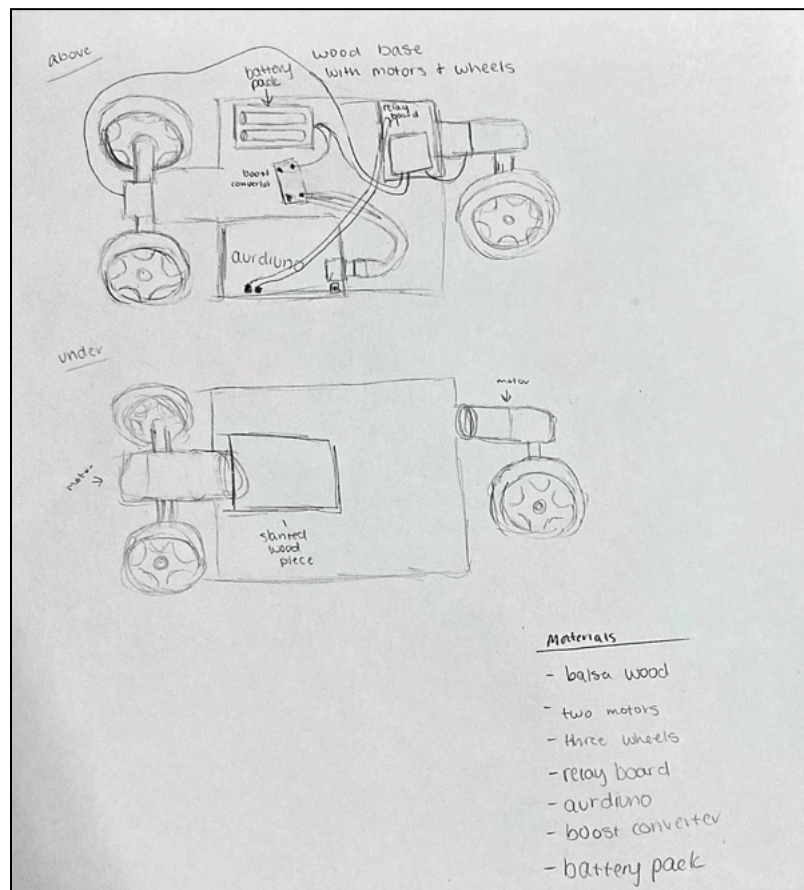 above
wood base
with motors + wheels
battery
pack
relay
board
boost
converter
aurdiuno
under
motor
motor
slanted
wood
piece
Materials
- balsa wood
- two motors
- three wheels
- relay board
- aurdiuno
- boost converter
- battery pack